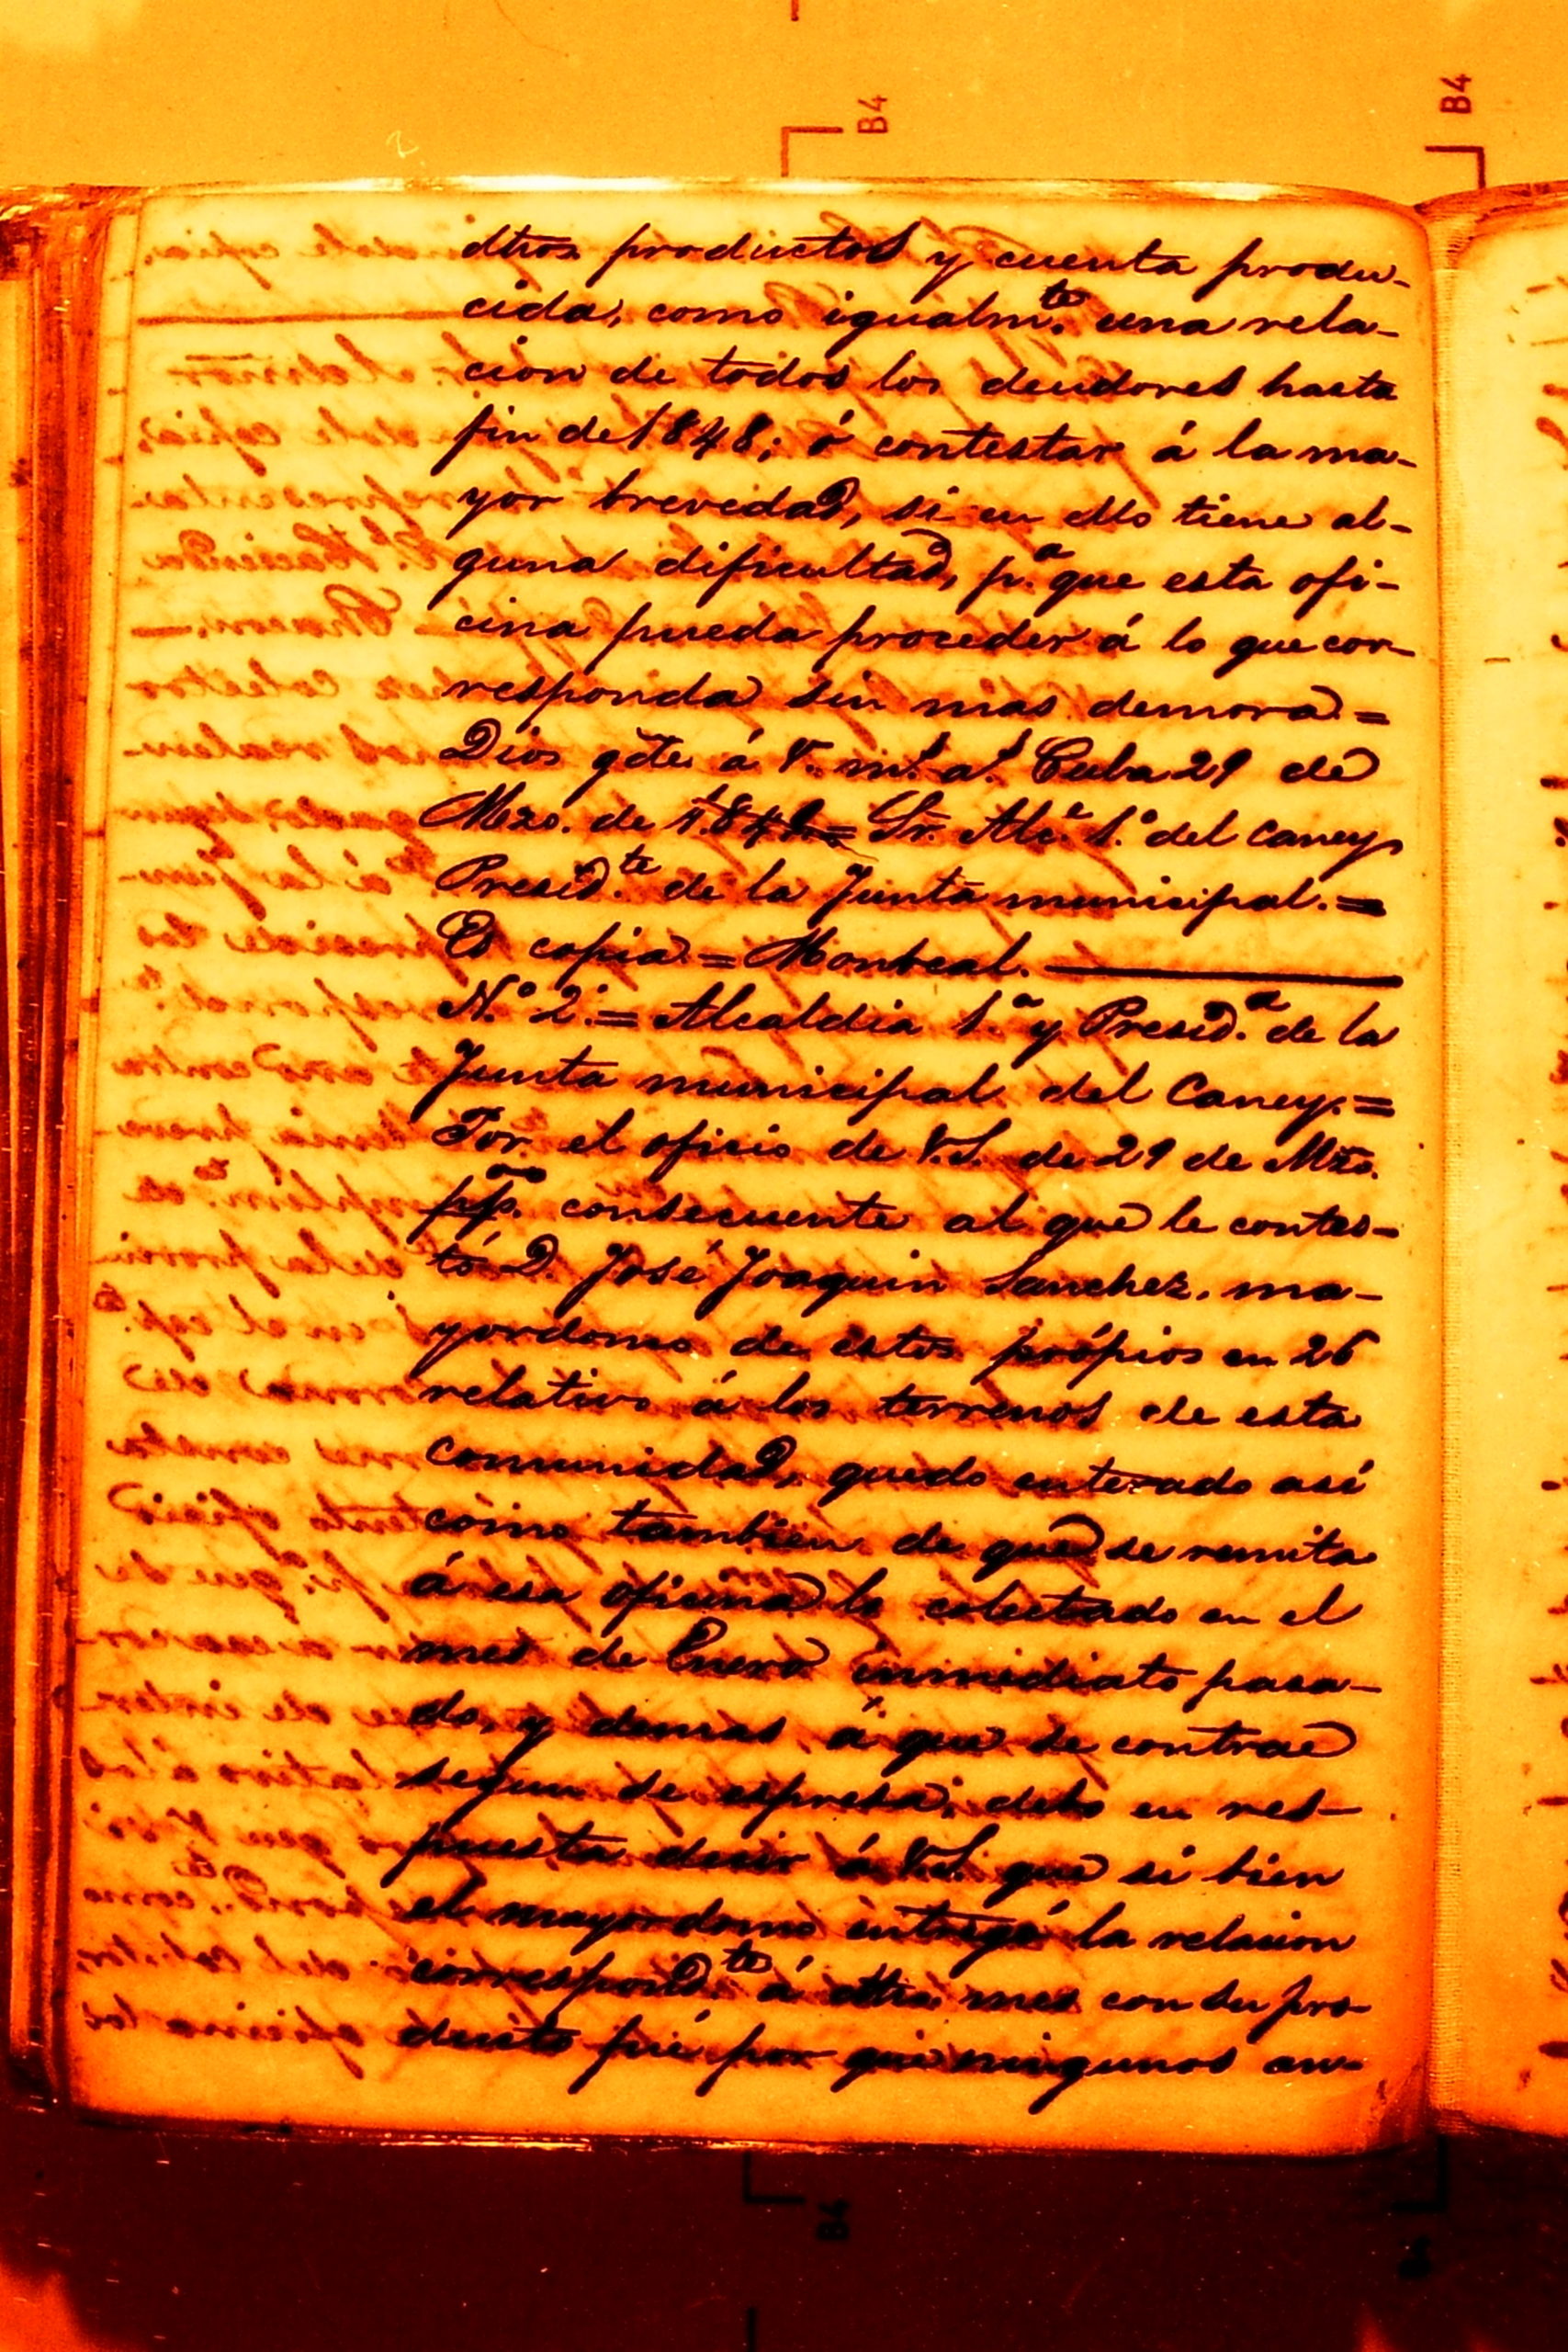 B4
B4
dhos productos y cuenta produ-
cida, como igualm.te una rela-
cion de todos los deudores hasta
fin de 1848; ó contestar á la ma-
yor brevedad, si en ello tiene al-
guna dificultad, p.a que esta ofi-
cina pueda proceder á lo que cor-
responda sin mas demora.=
Dios gde á V. m.s a.s Cuba 29 de
Mzo. de 1849.= Sr. Alc.e 1.o del Caney
Presid.te de la Junta municipal.=
Es copia.= Monreal.
N.o 2.o = Alcaldia 1.a y Presid.a de la
Junta municipal del Caney.=
Por el oficio de V.S. de 29 de Mzo.
pp.o consecuente al que le contes-
tó D. José Joaquin Sanchez, ma-
yordomo de estos própios en 26
relativo á los terrenos de esta
comunidad, quedo enterado asi
cómo tambien de que se remita
á esa oficina lo colectado en el
mes de Enero inmediato pasa-
do, y demas á que se contrae
segun se espresa; debo en res-
puesta decir á V.S. que si bien
el mayordomo entregó la relacion
correspond.te á dho mes con su pro-
ducto fué por que ningunos an-
B4